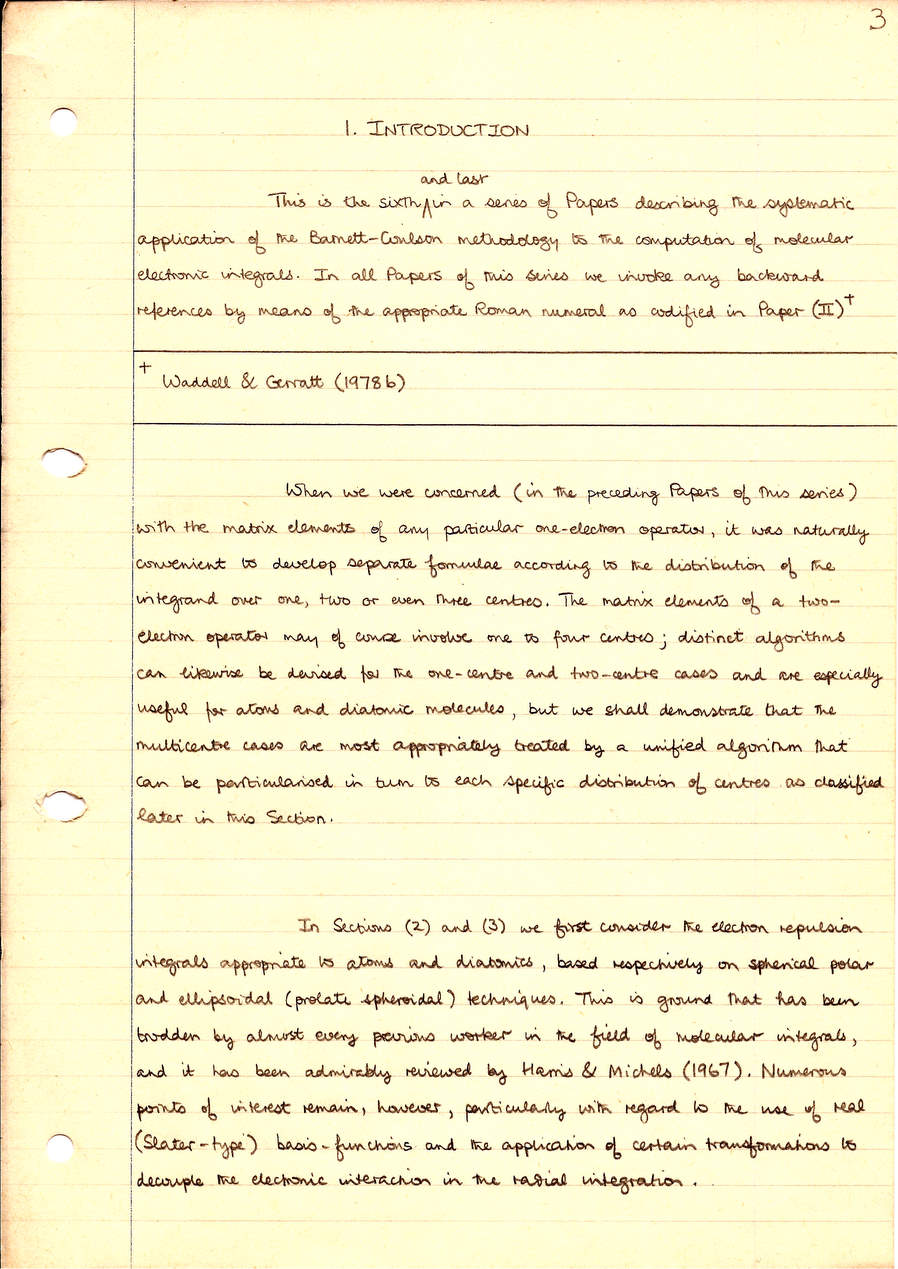 3
1. INTRODUCTION
and last
This is the sixth in a series of Papers describing the systematic
application of the Barnett-Coulson methodology to the computation of molecular
electronic integrals. In all Papers of this series we invoke any backward
references by means of the appropriate Roman numeral as codified in Paper (II)†
† Waddell & Gerratt (1978b)
When we were concerned (in the preceding Papers of this series)
with the matrix elements of any particular one-electron operator, it was naturally
convenient to develop separate formulae according to the distribution of the
integrand over one, two or even three centres. The matrix elements of a two-
electron operator may of course involve one to four centres; distinct algorithms
can likewise be devised for the one-centre and two-centre cases and are especially
useful for atoms and diatomic molecules, but we shall demonstrate that the
multicentre cases are most appropriately treated by a unified algorithm that
can be particularised in turn to each specific distribution of centres as classified
later in this Section.
In Sections (2) and (3) we first consider the electron repulsion
integrals appropriate to atoms and diatomics, based respectively on spherical polar
and ellipsoidal (prolate spheroidal) techniques. This is ground that has been
trodden by almost every previous worker in the field of molecular integrals,
and it has been admirably reviewed by Harris & Michels (1967). Numerous
points of interest remain, however, particularly with regard to the use of real
(Slater-type) basis-functions and the application of certain transformations to
decouple the electronic interaction in the radial integration.